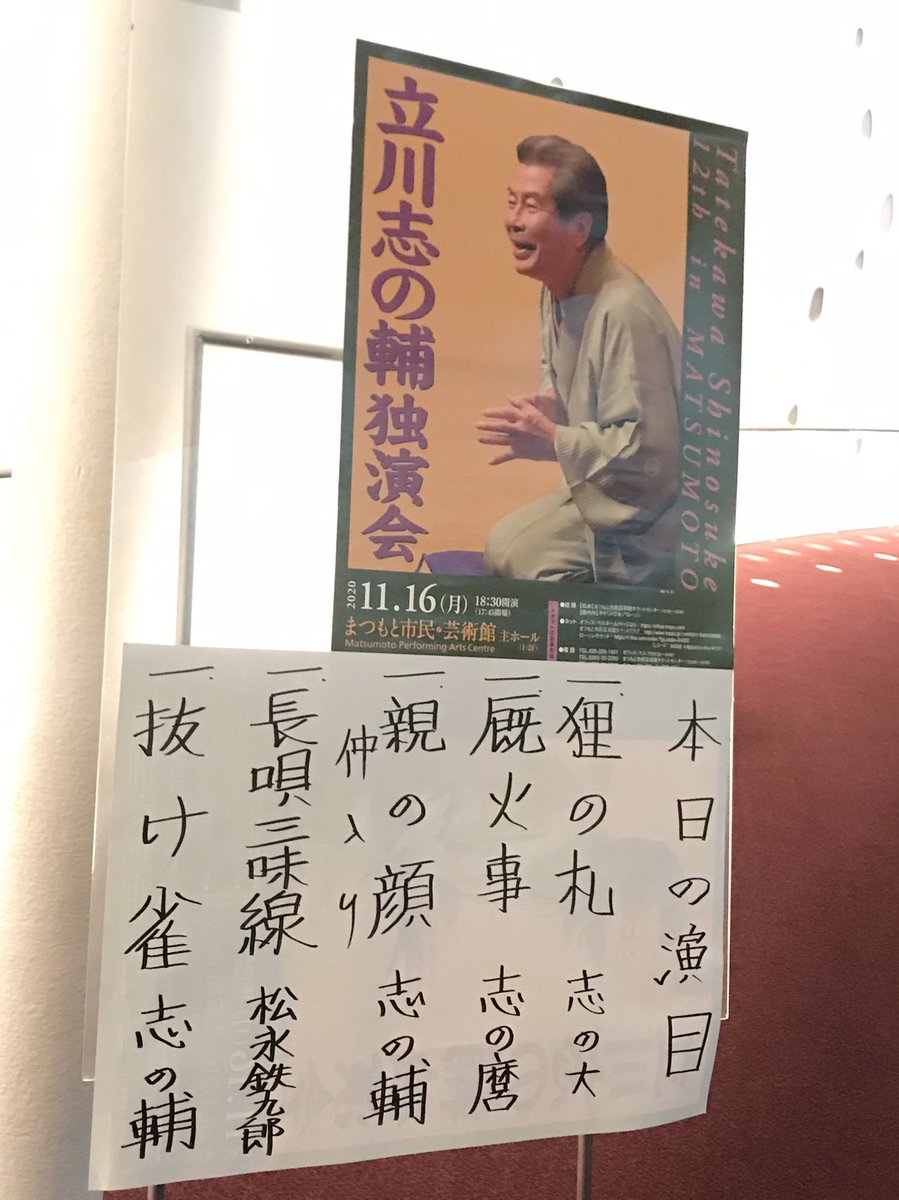 立川志の輔独演会
Tatekawa Shinosuke
12th in MATSUMOTO
2020
11.16(月) 18:30開演
(17:45開場)
まつもと市民・芸術館 主ホール
Matsumoto Performing Arts Centre
本日の演目
一、狸の札 志の大
一、厩火事 志の麿
一、親の顔 志の輔
仲入り
一、長唄三味線 松永鉄九郎
一、抜け雀 志の輔